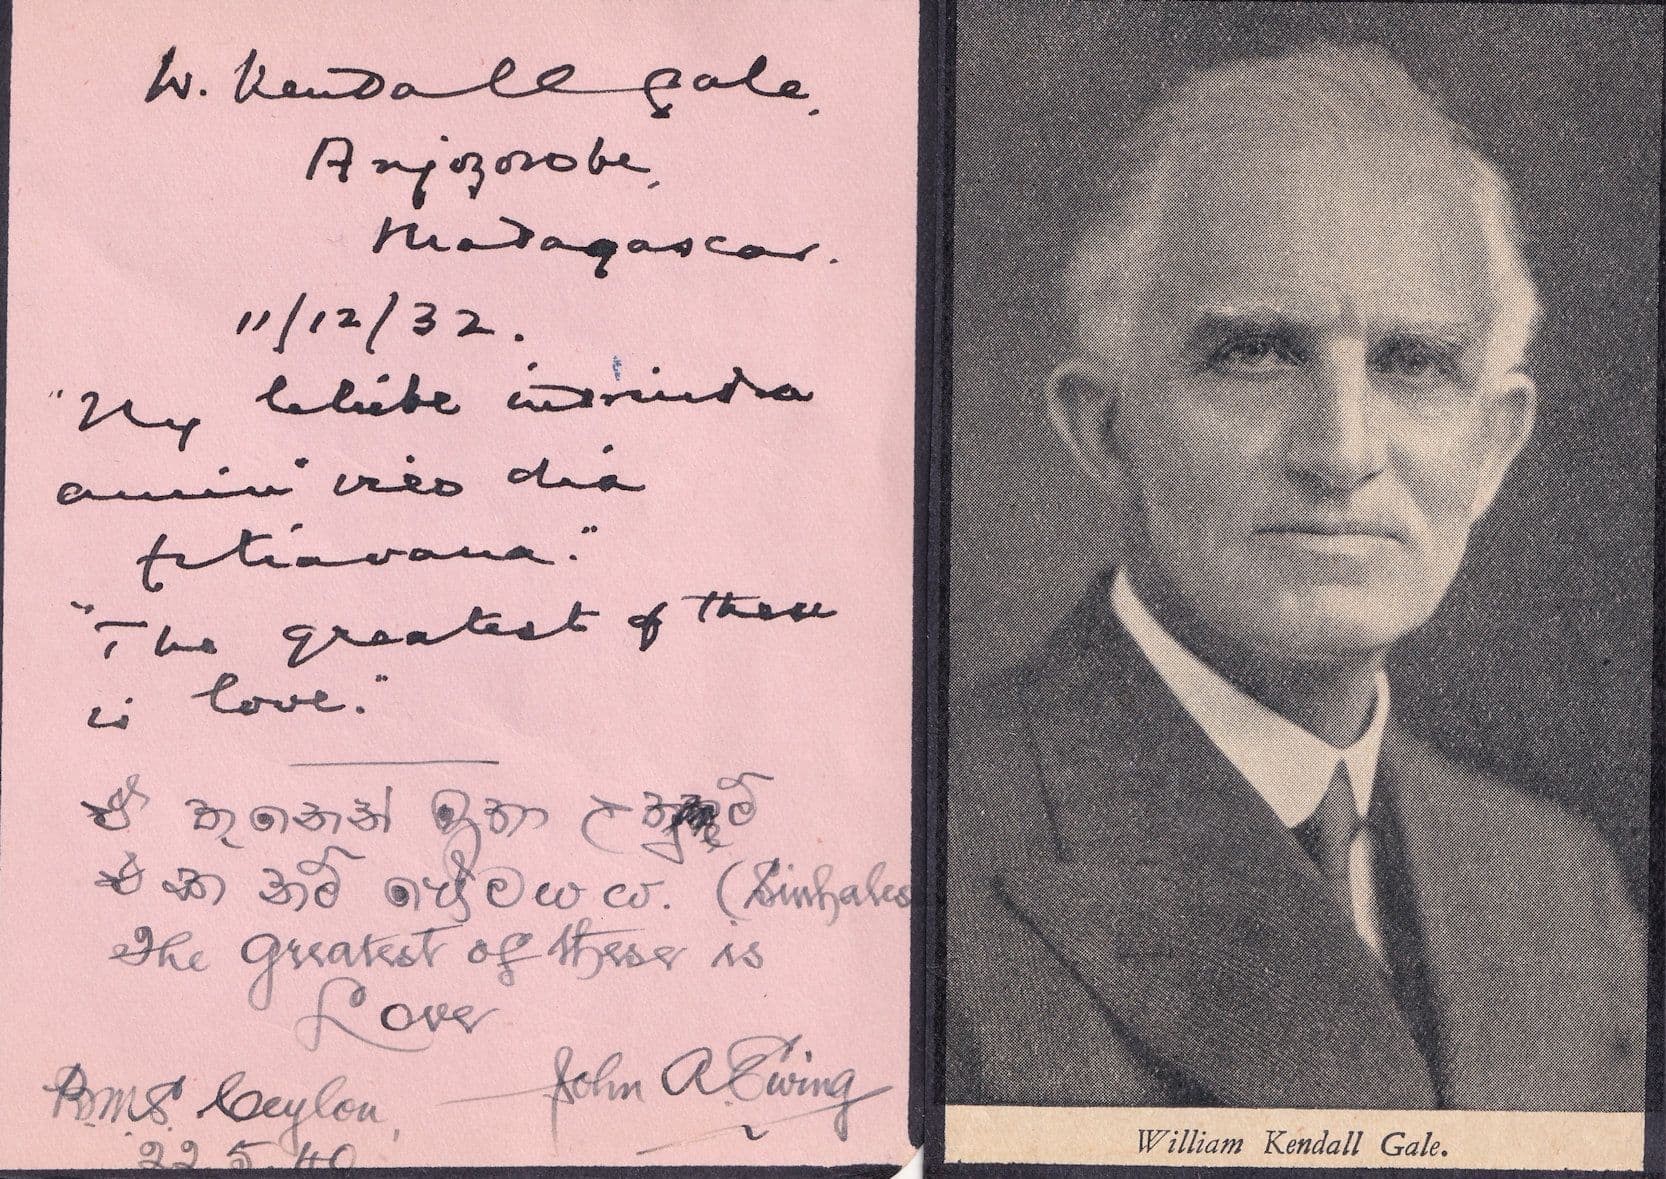 W. Kendall Gale,
Anjozorobe,
Madagascar.
11/12/32.
"Ny lehibe indrindra
amin' ireo dia
fitiavana."
"The greatest of these
is love."
උතුම්
නම් ප්‍රේමයය. (Sinhales
The Greatest of these is
Love
John A. Ewing
B.M.S. Ceylon,
22.5.40
William Kendall Gale.